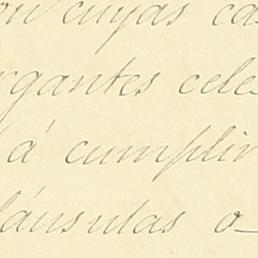 on cuyas ca
rgantes cele
á cumplir
láusulas o